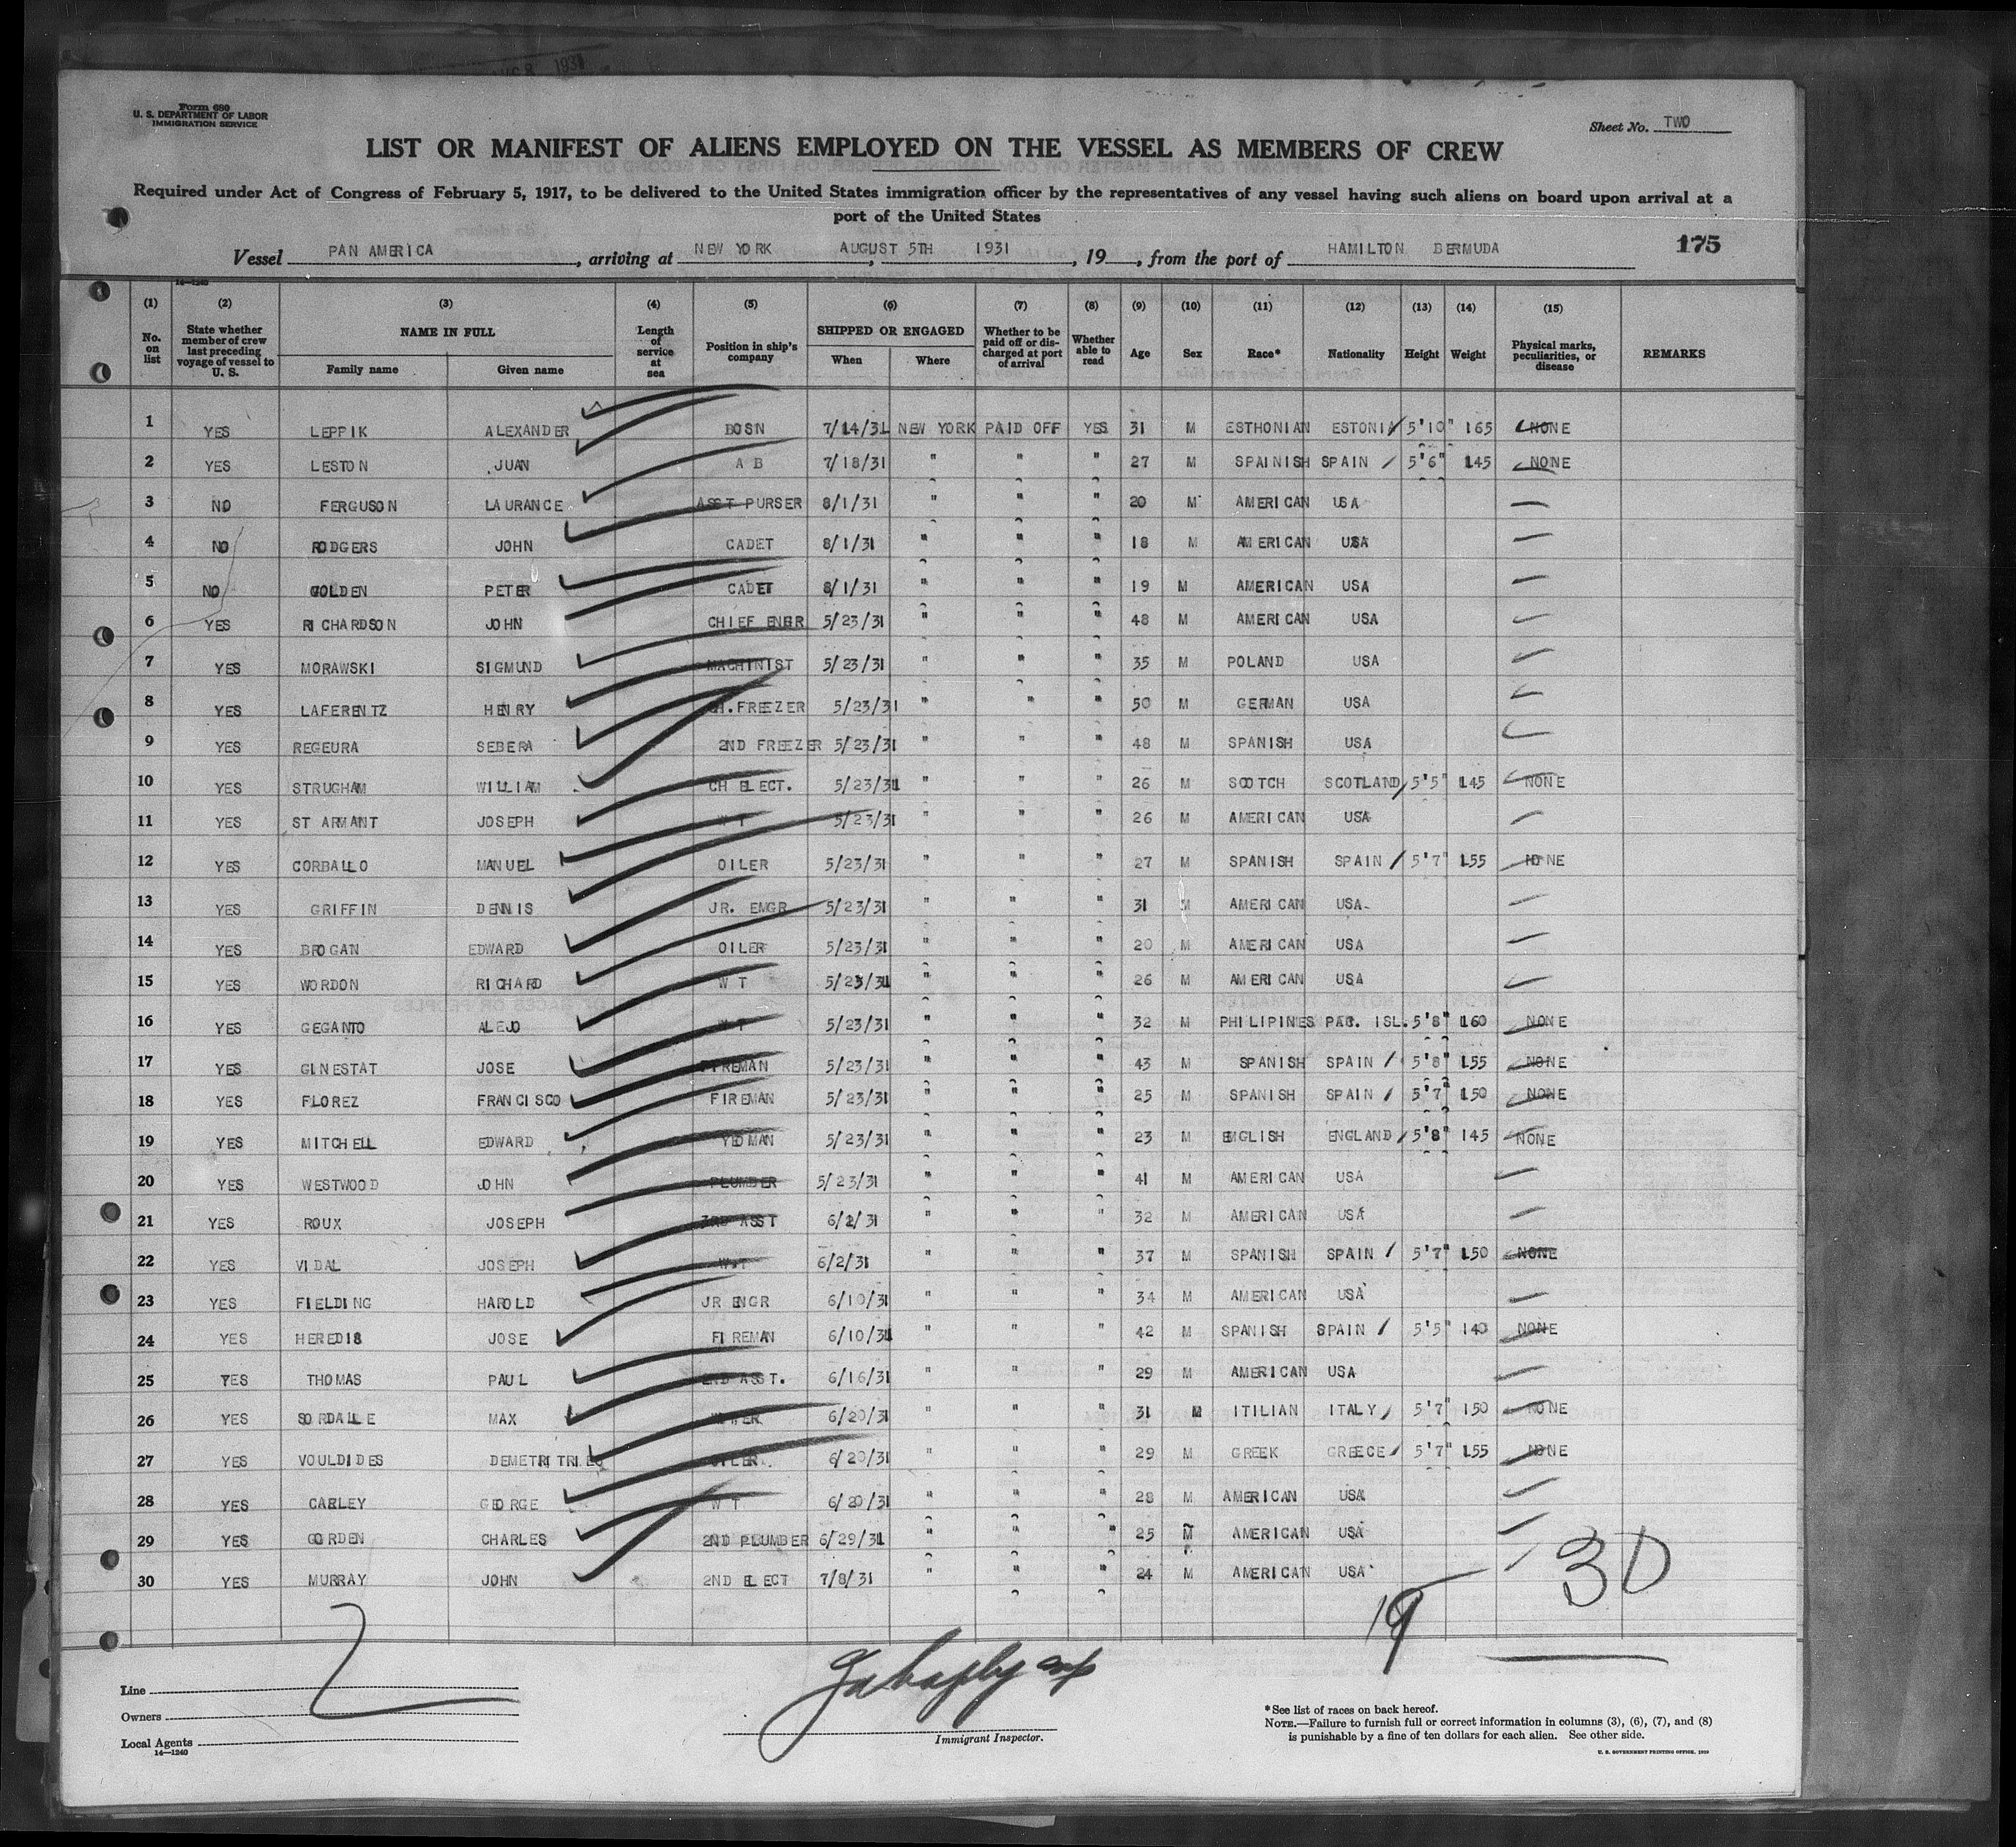 Form 680
U. S. DEPARTMENT OF LABOR
IMMIGRATION SERVICE
Sheet No. TWO
LIST OR MANIFEST OF ALIENS EMPLOYED ON THE VESSEL AS MEMBERS OF CREW
Required under Act of Congress of February 5, 1917, to be delivered to the United States immigration officer by the representatives of any vessel having such aliens on board upon arrival at a
port of the United States
Vessel PAN AMERICA, arriving at NEW YORK, AUGUST 5TH 1931, 19, from the port of HAMILTON BERMUDA 175
14-1240
(1) (2) (3) (4) (5) (6) (7) (8) (9) (10) (11) (12) (13) (14) (15)
No. on list State whether member of crew last preceding voyage of vessel to U. S. NAME IN FULL Family name Given name Length of service at sea Position in ship's company SHIPPED OR ENGAGED When Where Whether to be paid off or discharged at port of arrival Whether able to read Age Sex Race* Nationality Height Weight Physical marks, peculiarities, or disease REMARKS
1 YES LEPPIK ALEXANDER BOSN 7/14/31 NEW YORK PAID OFF YES 31 M ESTHONIAN ESTONIA 5'10" 165 NONE
2 YES LESTON JUAN A B 7/18/31 " " " 27 M SPAINISH SPAIN 5'6" 145 NONE
3 NO FERGUSON LAURANCE ASST PURSER 8/1/31 " " " 20 M AMERICAN USA
4 NO RODGERS JOHN CADET 8/1/31 " " " 18 M AMERICAN USA
5 NO GOLDEN PETER CADET 8/1/31 " " " 19 M AMERICAN USA
6 YES RICHARDSON JOHN CHIEF ENGR 5/23/31 " " " 48 M AMERICAN USA
7 YES MORAWSKI SIGMUND MACHINIST 5/23/31 " " " 35 M POLAND USA
8 YES LAFERENTZ HENRY CH.FREEZER 5/23/31 " " " 50 M GERMAN USA
9 YES REGEURA SEBERA 2ND FREEZER 5/23/31 " " " 48 M SPANISH USA
10 YES STRUGHAM WILLIAM CH ELECT. 5/23/31 " " " 26 M SCOTCH SCOTLAND 5'5" 145 NONE
11 YES ST ARMANT JOSEPH W T 5/23/31 " " " 26 M AMERICAN USA
12 YES CORBALLO MANUEL OILER 5/23/31 " " " 27 M SPANISH SPAIN 5'7" 155 NONE
13 YES GRIFFIN DENNIS JR. ENGR 5/23/31 " " " 31 M AMERICAN USA
14 YES BROGAN EDWARD OILER 5/23/31 " " " 20 M AMERICAN USA
15 YES WORDON RICHARD W T 5/23/31 " " " 26 M AMERICAN USA
16 YES GEGANTO ALEJO W T 5/23/31 " " " 32 M PHILIPINES PAC. ISL. 5'8" 160 NONE
17 YES GINESTAT JOSE FIREMAN 5/23/31 " " " 43 M SPANISH SPAIN 5'8" 155 NONE
18 YES FLOREZ FRANCISCO FIREMAN 5/23/31 " " " 25 M SPANISH SPAIN 5'7" 150 NONE
19 YES MITCHELL EDWARD YEOMAN 5/23/31 " " " 23 M EMGLISH ENGLAND 5'8" 145 NONE
20 YES WESTWOOD JOHN PLUMBER 5/23/31 " " " 41 M AMERICAN USA
21 YES ROUX JOSEPH 3RD ASST 6/2/31 " " " 32 M AMERICAN USA
22 YES VIDAL JOSEPH W.T 6/2/31 " " " 37 M SPANISH SPAIN 5'7" 150 NONE
23 YES FIELDING HAROLD JR ENGR 6/10/31 " " " 34 M AMERICAN USA
24 YES HEREDI8 JOSE FIREMAN 6/10/31 " " " 42 M SPANISH SPAIN 5'5" 140 NONE
25 YES THOMAS PAUL 2ND ASST. 6/16/31 " " " 29 M AMERICAN USA
26 YES SORDAILE MAX 6/20/31 " " " 31 M ITILIAN ITALY 5'7" 150 NONE
27 YES VOULDIDES DEMETRITRIEO OILER. 6/20/31 " " " 29 M GREEK GREECE 5'7" 155 NONE
28 YES CARLEY GEORGE W T 6/20/31 " " " 28 M AMERICAN USA
29 YES GORDEN CHARLES 2ND PLUMBER 6/29/31 " " " 25 M AMERICAN USA
30 YES MURRAY JOHN 2ND ELECT 7/8/31 " " " 24 M AMERICAN USA
30
19
2
Line
Owners
Local Agents
14—1240
Immigrant Inspector.
*See list of races on back hereof.
NOTE.—Failure to furnish full or correct information in columns (3), (6), (7), and (8)
is punishable by a fine of ten dollars for each alien. See other side.
U. S. GOVERNMENT PRINTING OFFICE, 1929